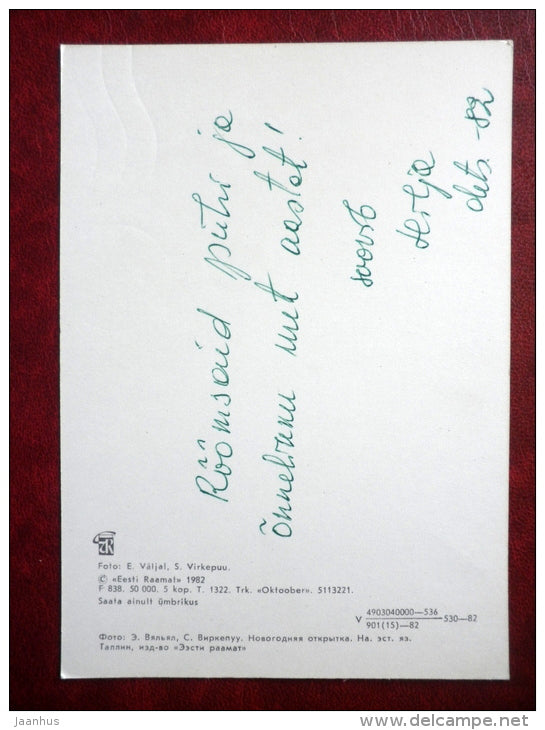 Rõõmsaid pühi ja
õnnelikku uut aastat!
soovib
Helja
dets. -82
Foto: E. Väljal, S. Virkepuu.
© «Eesti Raamat» 1982
F 838. 50 000. 5 kop. T. 1322. Trk. «Oktoober». 5113221.
Saata ainult ümbrikus
V 4903040000—536
901(15)—82 —530—82
Фото: Э. Вяльял, С. Виркепуу. Новогодняя открытка. На. эст. яз.
Таллин, изд-во «Ээсти раамат»
jaanhus
www.delcampe.net